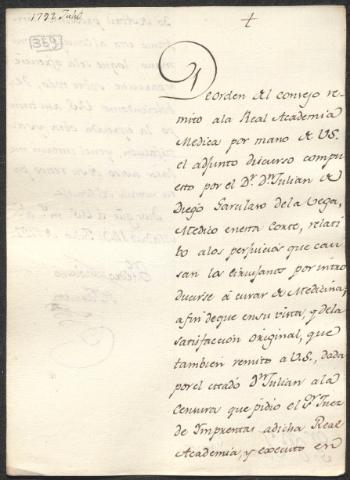 1792 Julio
359
De orden del consejo re-
mito ala Real Academia
Medica por mano de V.S.
el adjunto discurso compu-
esto por el Dr. Dn. Julian de
Diego Garcilaso dela Vega,
Medico en esta Corte, relati-
vo alos perjuicios que cau-
san los cirujanos por intro
ducirse á curar de Medicina,
afin de que en su vista, y de la
satisfaccion original, que
tambien remito a V.S., dada
por el citado Dn. Julian ala
Censura que pidio el Sr. Juez
de Imprentas a dicha Real
Academia, y executo en